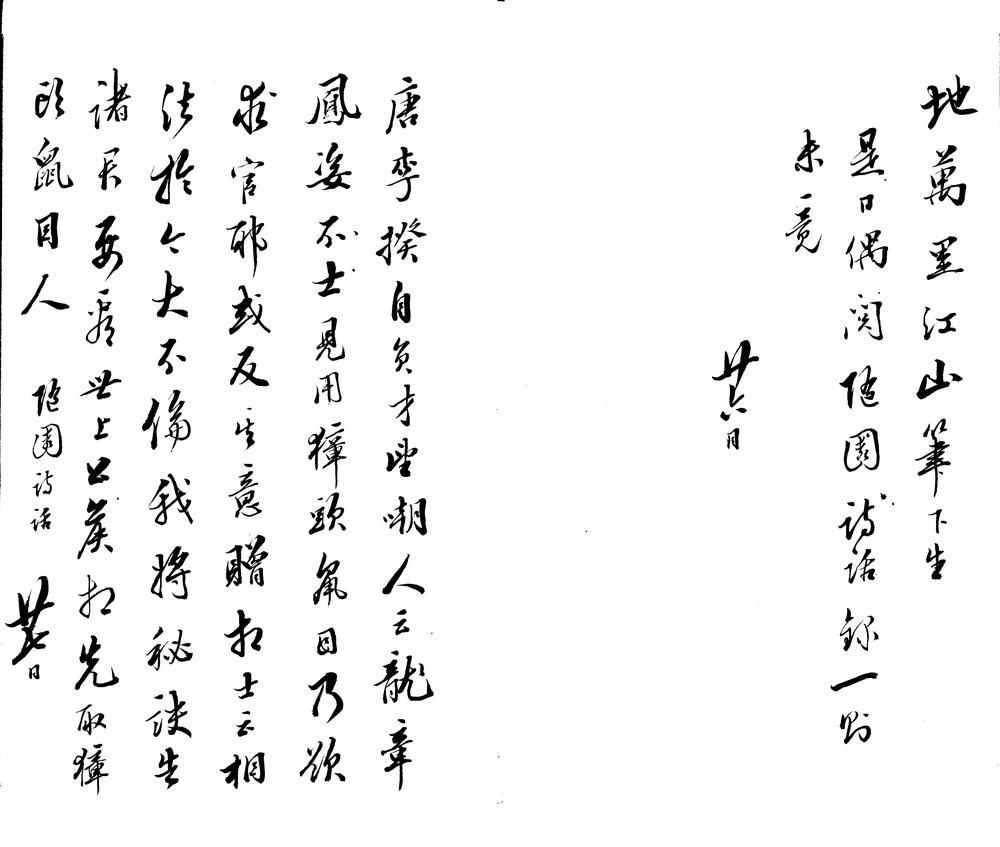 地萬里江山筆下生
是日偶閱隨園詩話錄一則
未竟
廿六日
唐李揆自負才望嘲人云龍章
鳳姿不士見用獐頭鼠目乃欲
求官耶或反其意贈相士云相
法於今大不倫我將秘訣告
諸君要看世上公矦相先取獐
頭鼠目人 隨園詩話
廿七日